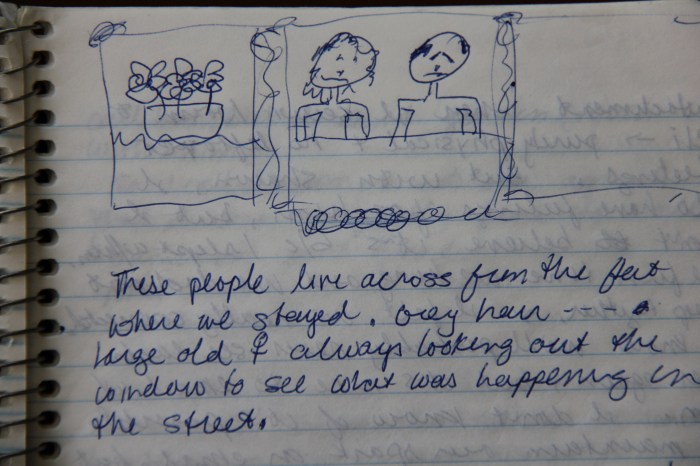 These people live across from the flat
where we stayed. Grey hair ---
large old & always looking out the
window to see what was happening in
the street.